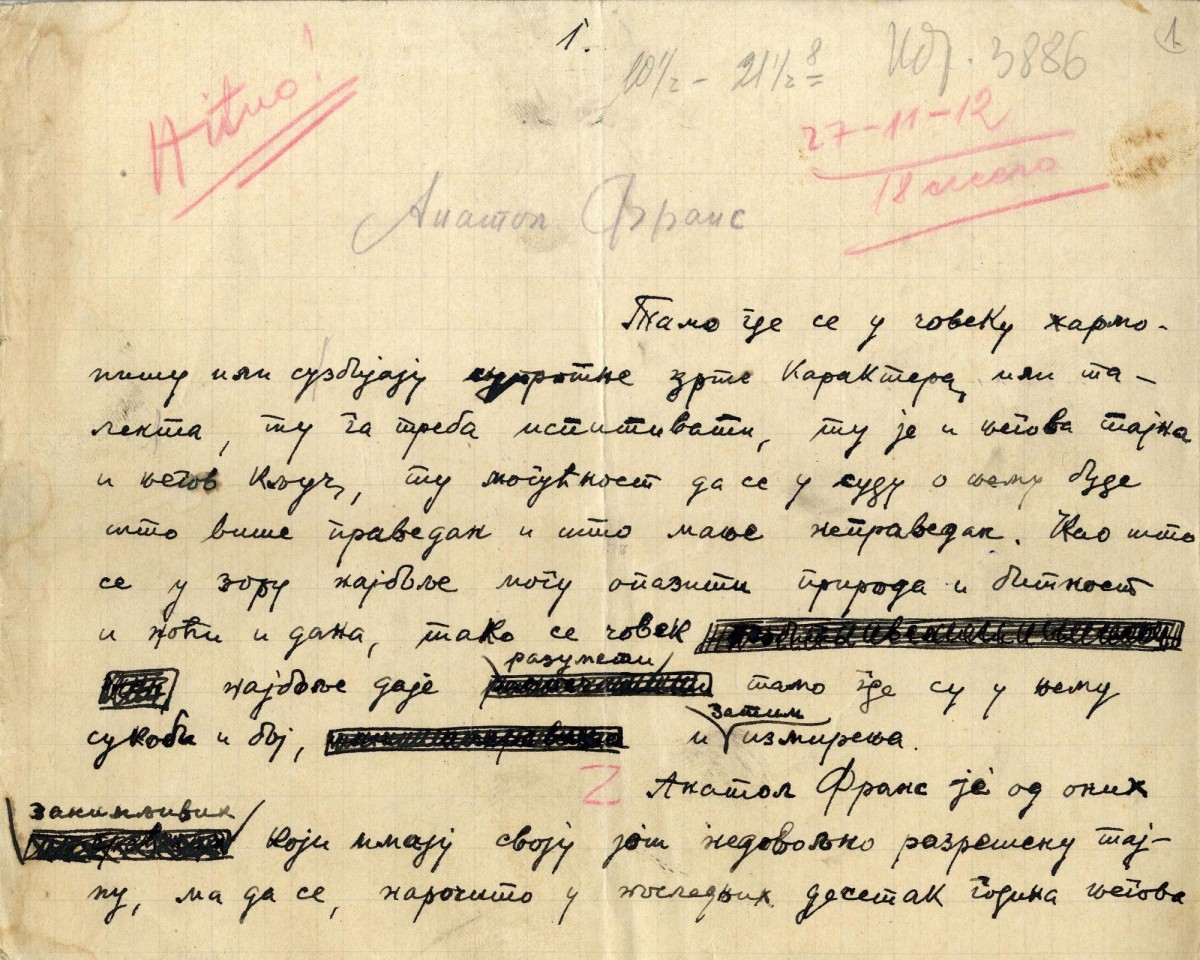 1.
10½ – 21½ 8
Иб. 3886
1
Hitno!
27-11-12
18
Анатол Франс
Тамо где се у човеку хармо-
нишу или сузбијају супротне црте карактера или та-
лента, ту га треба испитивати, ту је и његова тајна
и његов кључ, ту могућност да се у суду о њему буде
што више праведан и што мање неправедан. Као што
се у зору најбоље могу опазити природа и битност
и ноћи и дана, тако се човек
разумети
најбоље даје тамо где су у њему
затим
сукоби и бој, и измирења.
Анатол Франс је од оних
занимљивих
који имају своју још недовољно разрешену тај-
ну, ма да се, нарочито у последњих десетак година његова